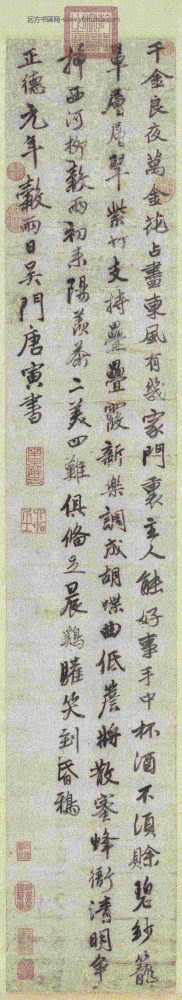 远方书画网-www.yfshuhua.com
千金良夜萬金花占盡東風有幾家門裏主人能好事手中杯酒不須賒碧紗籠
罩層層翠紫竹支持疊疊霞新樂調成胡蝶曲低簷將散蜜蜂衙清明争
插西河柳穀雨初来陽羨茶二美四難俱俻足晨鷄歡笑到昏鴉
正德元年穀雨日吳門唐寅書